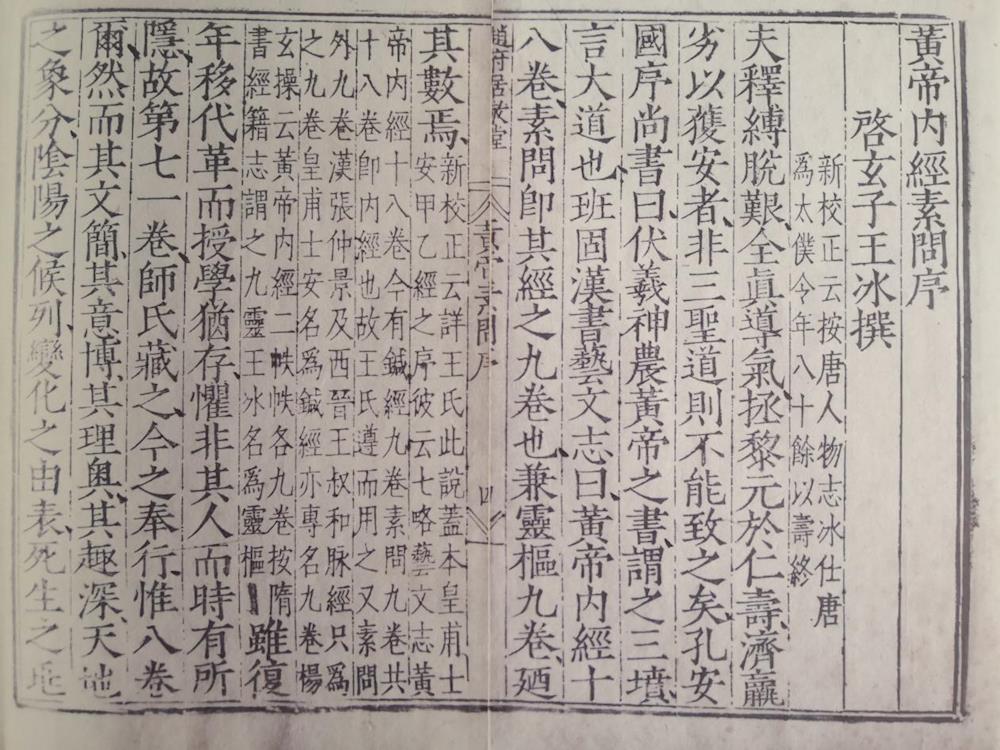 黃帝內經素問序
啓玄子王冰撰
新校正云按唐人物志冰仕唐
爲太僕令年八十餘以壽終
夫釋縛脫艱全眞導氣拯黎元於仁壽濟羸
劣以獲安者非三聖道則不能致之矣孔安
國序尚書曰伏羲神農黃帝之書謂之三墳
言大道也班固漢書藝文志曰黃帝內經十
八卷素問卽其經之九卷也兼靈樞九卷廼
趙府居敬堂 黃帝素問序 四
其數焉
新校正云詳王氏此說蓋本皇甫士
安甲乙經之序彼云七略藝文志黃
帝內經十八卷今有鍼經九卷素問九卷共
十八卷卽內經也故王氏遵而用之又素問
外九卷漢張仲景及西晉王叔和脉經只爲
之九卷皇甫士安名爲鍼經亦專名九卷楊
玄操云黃帝內經二帙帙各九卷按隋
書經籍志謂之九靈王冰名爲靈樞
雖復
年移代革而授學猶存懼非其人而時有所
隱故第七一卷師氏藏之今之奉行惟八卷
爾然而其文簡其意博其理奧其趣深天地
之象分陰陽之候列變化之由表死生之